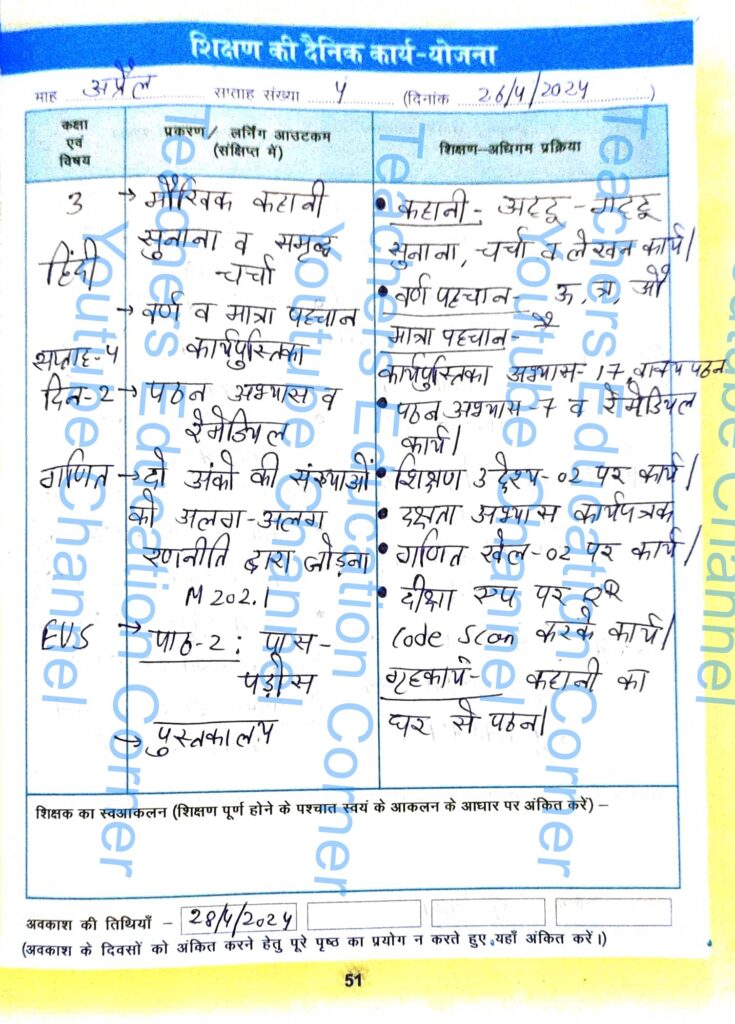 शिक्षण की दैनिक कार्य-योजना
माह अप्रैल सप्ताह संख्या 4 (दिनांक 26/4/2024)
कक्षा एवं विषय
प्रकरण/ लर्निंग आउटकम (संक्षिप्त में)
शिक्षण-अधिगम प्रक्रिया
3
हिंदी
सप्ताह-4
दिन-2
→ मौखिक कहानी
सुनाना व समृद्ध
चर्चा
→ वर्ण व मात्रा पहचान
कार्यपुस्तिका
→ पठन अभ्यास व
रेमेडियल
• कहानी- अटटू-गटटू
सुनाना, चर्चा व लेखन कार्य।
• वर्ण पहचान- ऊ, त्र, औ
मात्रा पहचान- ै
कार्यपुस्तिका अभ्यास-17, वाक्य पठन
• पठन अभ्यास-7 व रेमेडियल
कार्य।
गणित → दो अंको की संख्याओं
को अलग-अलग
रणनीति द्वारा जोड़ना
M202.1
• शिक्षण उद्देश्य-02 पर कार्य।
• दक्षता अभ्यास कार्यपत्रक
• गणित खेल-02 पर कार्य।
• दीक्षा एप पर QR
Code Scan करके कार्य।
EVS → पाठ-2: पास-
पड़ोस
→ पुस्तकालय
गृहकार्य- कहानी का
घर से पठन।
शिक्षक का स्वआकलन (शिक्षण पूर्ण होने के पश्चात स्वयं के आकलन के आधार पर अंकित करें) –
अवकाश की तिथियाँ – 28/4/2024
(अवकाश के दिवसों को अंकित करने हेतु पूरे पृष्ठ का प्रयोग न करते हुए यहाँ अंकित करें।)
51
Teachers Education Corner
Youtube Channel
Teachers Education Corner
Youtube Channel
Teachers Education Corner
Youtube Channel